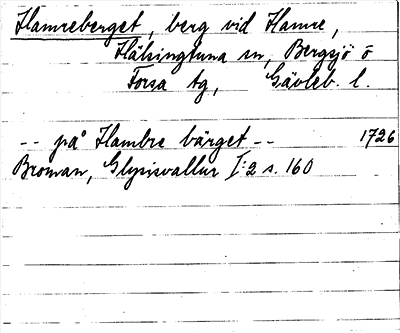 Hamreberget, berg vid Hamre,
Hälsingtuna sn, Bergsjö o
Forsa tg, Gävleb. l.
-- på Hambre bärget -- 1726
Broman, Glysisvallur I:2 s. 160